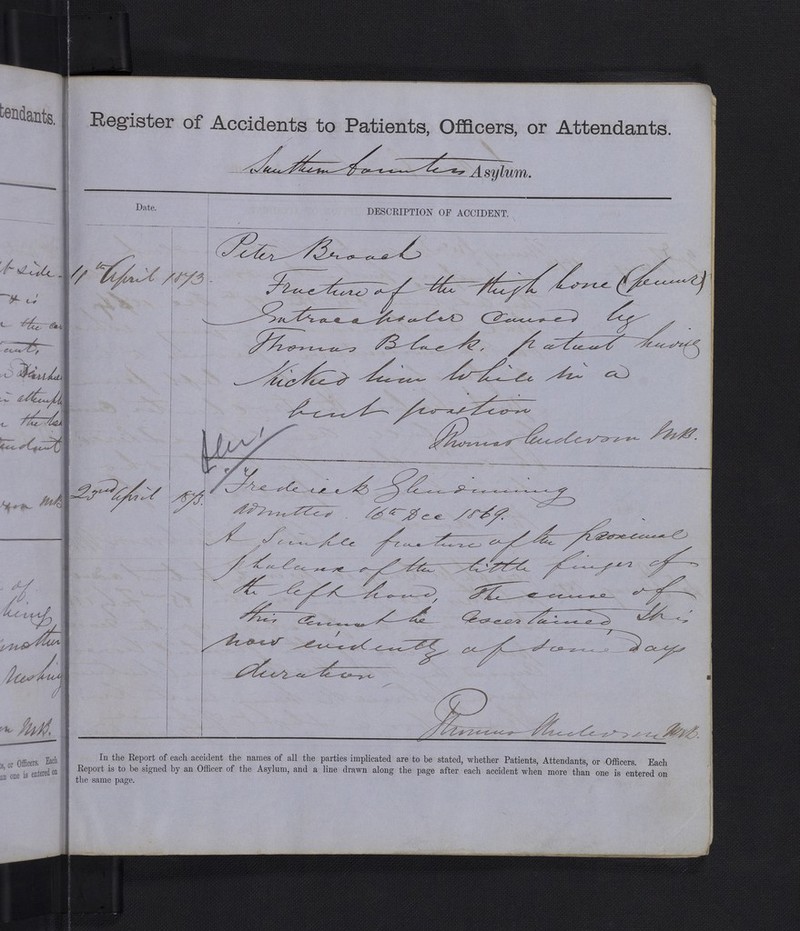 tendants.
Register of Accidents to Patients, Officers, or Attendants.
Southern Counties Asylum.
Date.
DESCRIPTION OF ACCIDENT.
Peter Broach
11th April 1873.
Fracture of the thigh bone (femur)
Intracapsular caused by
Thomas Black. patient having
kicked him while in a
bent position
Thomas Anderson MB.
23rd April 1873.
Frederick Glendinning
Admitted 16th Dec 1869.
A Simple fracture of the proximal
phalanx of the little finger of
the left hand, The cause of
this cannot be ascertained, It is
now evidently of some days
duration,
Thomas Anderson MB.
In the Report of each accident the names of all the parties implicated are to be stated, whether Patients, Attendants, or Officers. Each
Report is to be signed by an Officer of the Asylum, and a line drawn along the page after each accident when more than one is entered on
the same page.